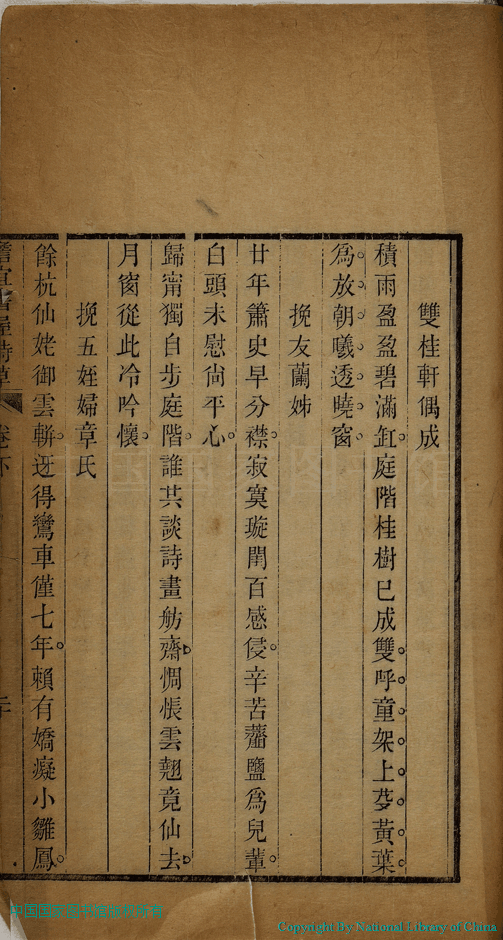 雙桂軒偶成
積雨盈盈碧滿缸庭階桂樹已成雙呼童架上芟黃葉
爲放朝曦透曉窗
挽友蘭姊
廿年簫史早分襟寂寞璇閨百感侵辛苦虀鹽爲兒輩
白頭未慰尙平心
歸甯獨自步庭階誰共談詩畫舫齋惆悵雲翹竟仙去
月窗從此冷吟懷
挽五姪婦章氏
餘杭仙姥御雲軿迓得鸞車僅七年賴有嬌癡小雛鳳
卷下
Copyright By National Library of China